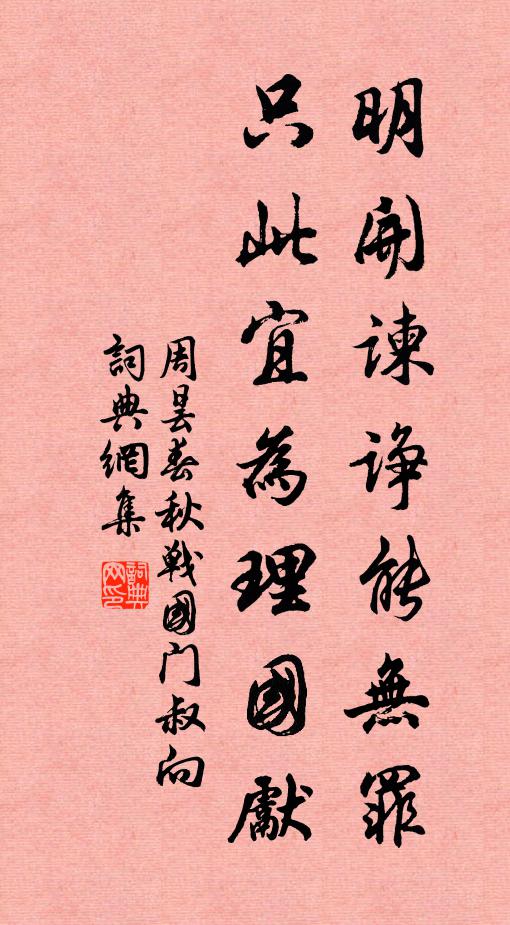 明開諫諍能無罪
只此宜為理國獻
周曇春秋戰國門叔向
詞典網集
詞典網印